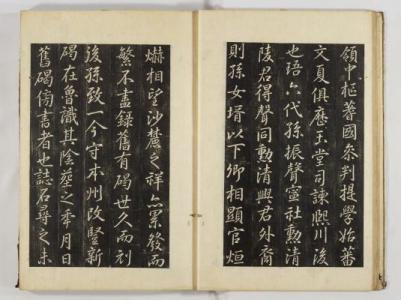 領中樞蕃國参判提學始蕃
文夏俱歷玉堂司諫熙川浚
也珸六代孫振聲寧社勲清
陵君得聲同勲清興君外裔
則孫女壻以下卿相顯官烜
爀相望沙麓之祥亦累發而
繁不盡錄舊有碣世久而刓
後孫致一今守本州改竪新
碣在魯識其陰葬之年月日
舊碣傍書者也誌石尋之未